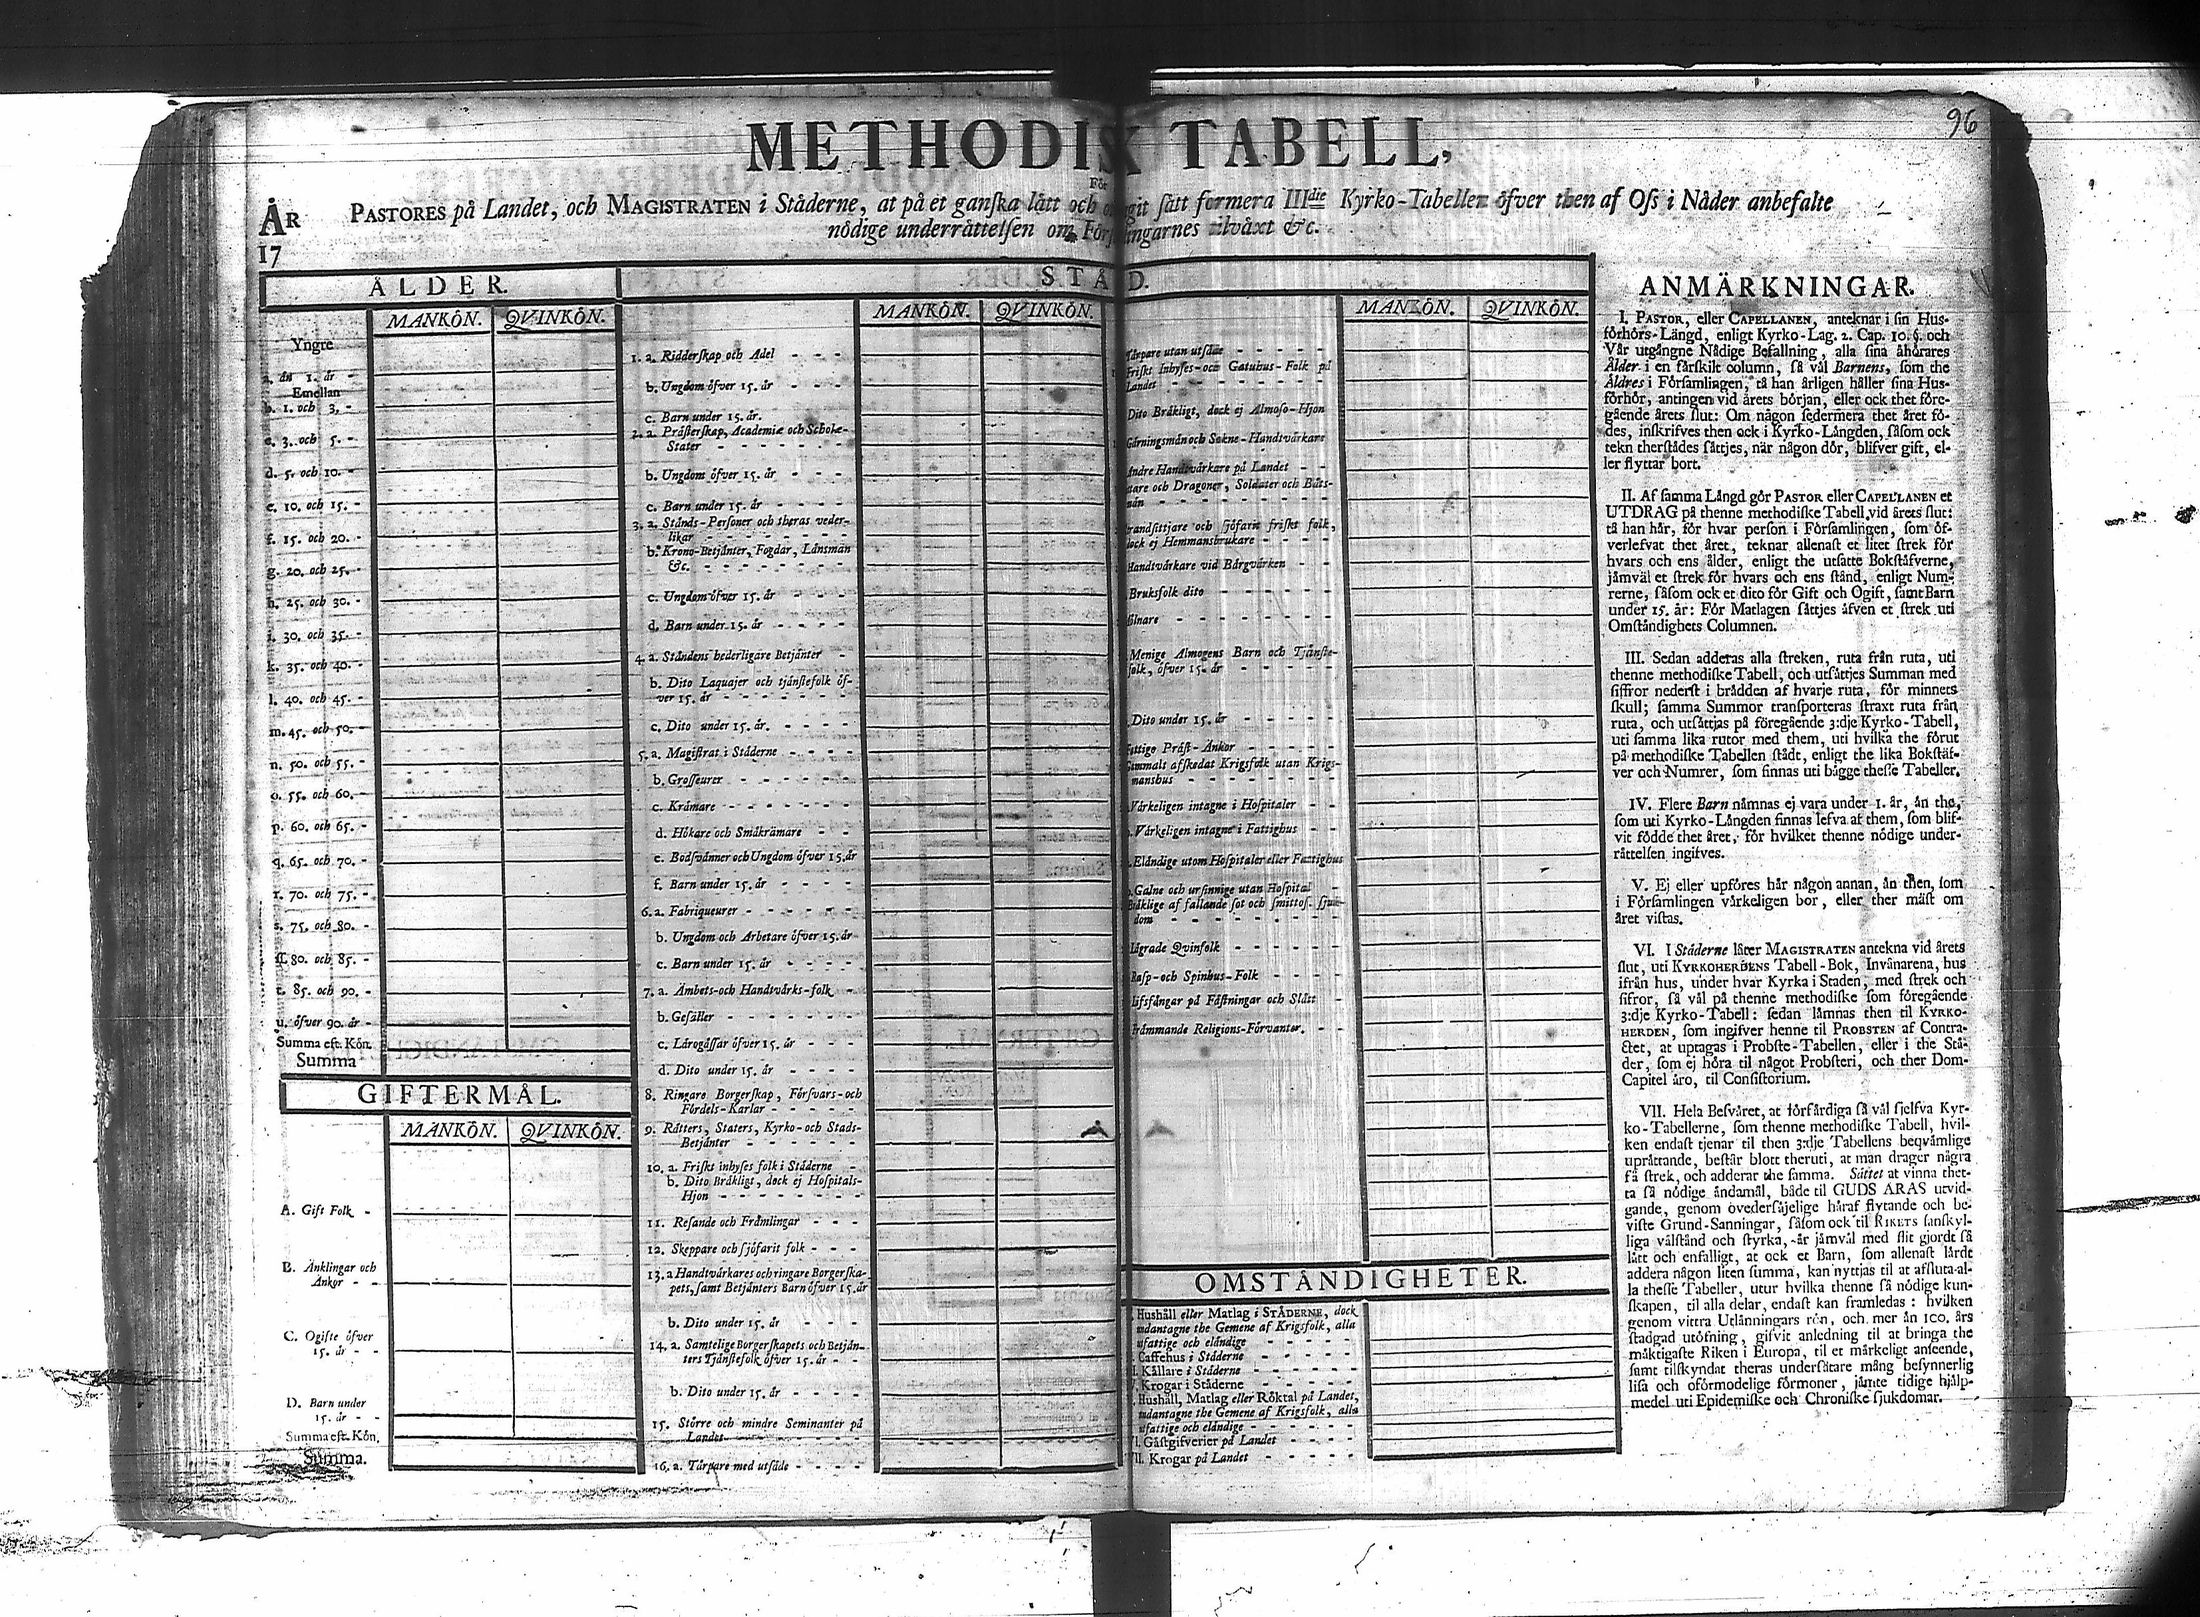 96
METHODISK TABELL,
För
ÅR PASTORES på Landet, och MAGISTRATEN i Städerne, at på et ganska lätt och sätt formera IIIdie Kyrko-Tabellen öfver then af Oss i Nåder anbefalte
17 nödige underrättelsen om tilväxt &c.
ÅLDER.
MANKÖN. QVINKÖN.
Yngre
a. än 1. år -
Emellan
b. 1. och 3. -
c. 3. och 5. -
d. 5. och 10. -
e. 10. och 15. -
f. 15. och 20. -
g. 20. och 25. -
h. 25. och 30. -
i. 30. och 35. -
k. 35. och 40. -
l. 40. och 45. -
m. 45. och 50. -
n. 50. och 55. -
o. 55. och 60. -
p. 60. och 65. -
q. 65. och 70. -
r. 70. och 75. -
s. 75. och 80. -
ſſ. 80. och 85. -
t. 85. och 90. -
u. öfver 90. år -
Summa eft. Kön.
Summa
GIFTERMÅL.
MANKÖN. QVINKÖN.
A. Gift Folk -
B. Änklingar och
Änkor - -
C. Ogifte öfver
15. år - -
D. Barn under
15. år - -
Summa eft. Kön.
Summa.
STÅND.
MANKÖN. QVINKÖN.
1. a. Ridderskap och Adel - - -
b. Ungdom öfver 15. år - - - -
c. Barn under 15. år.
2. a. Prästerskap, Academiæ och Schole-
Stater - - - - - - -
b. Ungdom öfver 15. år - - - -
c. Barn under 15. år - - - -
3. a. Stånds-Personer och theras veder-
likar - - - - - - -
b. Krono-Betjänter, Fogdar, Länsmän
&c. - - - - - - - -
c. Ungdom öfver 15. år - - - -
d. Barn under 15. år - - - - -
4. a. Ståndens hederligare Betjänter -
b. Dito Laquajer och tjänstefolk öf-
ver 15. år - - - - - - -
c. Dito under 15. år. - - - -
5. a. Magistrat i Städerne - - - -
b. Grosseurer - - - - - -
c. Krämare - - - - - - -
d. Hökare och Småkrämare - -
e. Bodsvänner och Ungdom öfver 15. år
f. Barn under 15. år - - - -
6. a. Fabriqueurer - - - - - -
b. Ungdom och Arbetare öfver 15. år -
c. Barn under 15. år - - - -
7. a. Ämbets-och Handtvärks-folk -
b. Gesäller - - - - - - -
c. Lärogåssar öfver 15. år - - -
d. Dito under 15. år - - - -
8. Ringare Borgerskap, Försvars-och
Fördels-Karlar - - - - - -
9. Rätters, Staters, Kyrko-och Stads-
Betjänter - - - - - -
10. a. Friskt inhyses folk i Städerne -
b. Dito Bräkligt, dock ej Hospitals-
Hjon - - - - - - - -
11. Resande och Främlingar - - -
12. Skeppare och sjöfarit folk - - -
13. a Handtvärkares och ringare Borgerska-
pets, samt Betjänters Barn öfver 15. år
b. Dito under 15. år - - - -
14. a. Samtelige Borgerskapets och Betjän-
ters Tjänstefolk öfver 15. år - -
b. Dito under 15. år - - - -
15. Större och mindre Seminanter på
Landet - - - - - - -
16. a. Tårpare med utsäde - - - -
MANKÖN. QVINKÖN.
Tårpare utan utsäde - - - - -
Friskt Inhyses-och Gatuhus-Folk på
Landet - - - - - - -
Dito Bräkligt, dock ej Almoso-Hjon
Gärningsmän och Sokne-Handtvärkare
Andre Handtvärkare på Landet - -
och Dragoner, Soldater och Båts-
män - - - - - - -
Strandsittjare och sjöfarit friskt folk,
dock ej Hemmansbrukare - - - -
Handtvärkare vid Bärgvärken - -
Bruksfolk dito - - - - - - -
Mölnare - - - - - - - -
Menige Almogens Barn och Tjänste-
folk, öfver 15. år - - - - -
Dito under 15. år - - - - -
Fattige Präst-Änkor - - - - -
Gammalt afskedat Krigsfolk utan Krigs-
manshus - - - - - - -
Värkeligen intagne i Hospitaler - -
Värkeligen intagne i Fattighus - -
Eländige utom Hospitaler eller Fattighus
Galne och ursinnige utan Hospital -
Bräklige af fallande sot och smittos. sjuk-
dom - - - - - - -
Lägrade Qvinfolk - - - - -
Rasp-och Spinhus-Folk - - - -
Lifsfångar på Fästningar och Slått -
Främmande Religions-Förvanter. - -
OMSTÄNDIGHETER.
Hushåll eller Matlag i STÄDERNE, dock
undantagne the Gemene af Krigsfolk, alla
utfattige och eländige - - - - -
Caffehus i Städerne - - - - -
Kållare i Städerne - - - - -
Krogar i Städerne - - - - -
Hushåll, Matlag eller Röktal på Landet,
undantagne the Gemene af Krigsfolk, alla
utfattige och eländige - - - - -
Gästgifverier på Landet - - - -
VII. Krogar på Landet - - - - -
ANMÄRKNINGAR.
I. PASTOR, eller CAPELLANEN, anteknar i sin Hus-
förhörs-Längd, enligt Kyrko-Lag. 2. Cap. 10. §. och
Vår utgångne Nådige Befallning, alla sina åhörares
Ålder i en särskilt column, så väl Barnens, som the
Äldres i Församlingen, tå han årligen håller sina Hus-
förhör, antingen vid årets början, eller ock thet före-
gående årets slut: Om någon sedermera thet året fö-
des, inskrifves then ock i Kyrko-Längden, såsom ock
tekn therstädes sättjes, när någon dör, blifver gift, el-
ler flyttar bort.
II. Af samma Längd gör PASTOR eller CAPELLANEN et
UTDRAG på thenne methodiske Tabell, vid årets slut:
tå han här, för hvar person i Församlingen, som öf-
verlefvat thet året, teknar allenast et litet strek för
hvars och ens ålder, enligt the utsatte Bokstäfverne,
jämväl et strek för hvars och ens stånd, enligt Num-
rerne, såsom ock et dito för Gift och Ogift, samt Barn
under 15. år: För Matlagen sättjes äfven et strek uti
Omständighets Columnen.
III. Sedan adderas alla streken, ruta från ruta, uti
thenne methodiske Tabell, och utsättjes Summan med
siffror nederst i brädden af hvarje ruta, för minnets
skull; samma Summor transporteras straxt ruta från
ruta, och utsättjas på föregående 3:dje Kyrko-Tabell,
uti samma lika rutor med them, uti hvilka the förut
på methodiske Tabellen städt, enligt the lika Bokstäf-
ver och Numrer, som finnas uti bägge thesse Tabeller.
IV. Flere Barn nämnas ej vara under 1. år, än the,
som uti Kyrko-Längden finnas lefva af them, som blif-
vit födde thet året, för hvilket thenne nödige under-
rättelsen ingifves.
V. Ej eller upföres här någon annan, än then, som
i Församlingen värkeligen bor, eller ther mäst om
året vistas.
VI. I Städerne låter MAGISTRATEN antekna vid årets
slut, uti KYRKOHERDENS Tabell-Bok, Invånarena, hus
ifrån hus, under hvar Kyrka i Staden, med strek och
sifror, så väl på thenne methodiske som föregående
3:dje Kyrko-Tabell: sedan lämnas then til KYRKO-
HERDEN, som ingifver henne til PROBSTEN af Contra-
ctet, at uptagas i Probste-Tabellen, eller i the Stä-
der, som ej höra til något Probsteri, och ther Dom-
Capitel äro, til Consistorium.
VII. Hela Besväret, at förfärdiga så väl sjelfva Kyr-
ko-Tabellerne, som thenne methodiske Tabell, hvil-
ken endast tjenar til then 3:dje Tabellens beqvämlige
uprättande, består blott theruti, at man drager några
få strek, och adderar the samma. Sättet at vinna thet-
ta så nödige ändamål, både til GUDS ÄRAS utvid-
gande, genom ovedersäjelige häraf flytande och be-
viste Grund-Sanningar, såsom ock til RIKETS sanskyl-
liga välstånd och styrka, är jämväl med flit gjordt så
lätt och enfalligt, at ock et Barn, som allenast lärdt
addera någon liten summa, kan nyttjas til at afsluta al-
la thesse Tabeller, utur hvilka thenne så nödige kun-
skapen, til alla delar, endast kan framledas: hvilken
genom vittra Utlänningars rön, och mer än 100. års
stadgad utöfning, gifvit anledning til at bringa the
mäktigaste Riken i Europa, til et märkeligt anseende,
samt tilskyndat theras undersåtare mång besynnerlig
lisa och oförmodelige förmoner, jämte tidige hjälp-
medel uti Epidemiske och Chroniske sjukdomar.